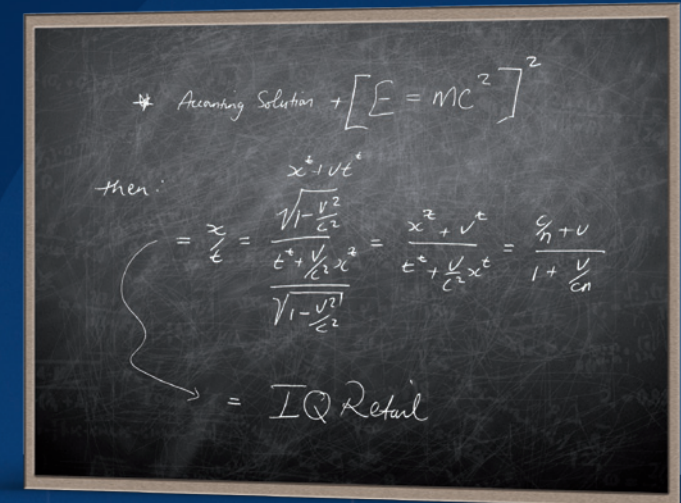 * Accounting Solution + [E = mc²]²
then:
= x/t = ((x² + vt²) / √(1 - v²/c²)) / ((t² + v/c² x²) / √(1 - v²/c²)) = (x² + v^t) / (t² + v/c² x^t) = (c/n + v) / (1 + v/cn)
= IQ Retail